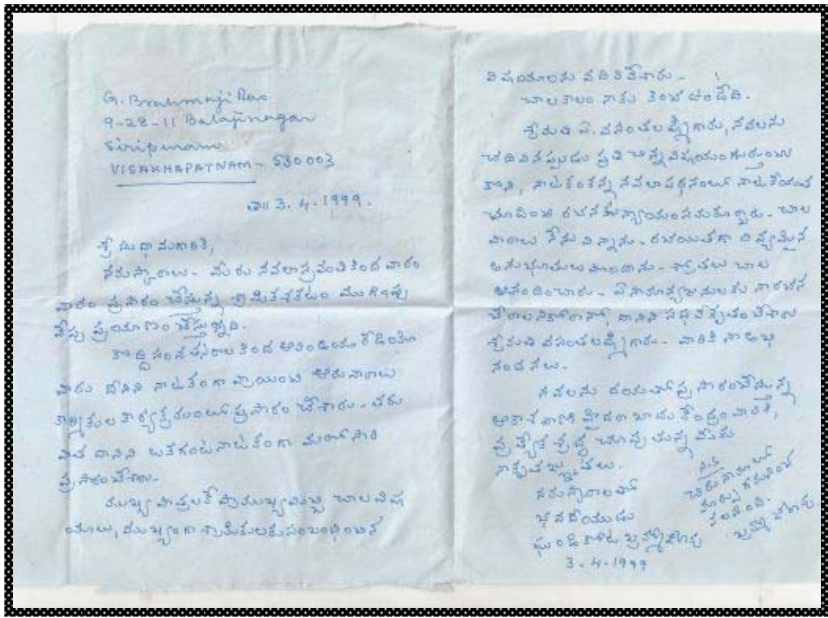 G. Brahmaji Rao
9-28-11 Balajinagar
Siripuram
VISAKHAPATNAM - 530003
తా॥ 3.4.1999.
శ్రీ సుధామగారికి,
నమస్కారాలు - మీరు నవలాస్రవంతి కింద వారం
వారం ప్రసారం చేస్తున్న శ్రామికశకటం ముగింపు
వేపు ప్రయాణం చేస్తున్నది.
కొద్ది సంవత్సరాల కింద ఆలిండియా రేడియో
వారు దీనిని నాటకంగా వ్రాయించి ఆరువారాలు
కార్మికుల కార్యక్రమంలో ప్రసారం చేశారు - తరు
వాత దానిని ఒకగంట నాటకంగా మరోసారి
ప్రసారంచేశారు.
ముఖ్యపాత్రలకే ప్రాముఖ్యమిచ్చి చాల విష
యాలు, ముఖ్యంగా శ్రామికులకు సంబంధించిన
విషయాలను వదిలివేశారు -
చాలకాలం నాకు కించ ఉండేది.
శ్రీమతి పి. వసంతలక్ష్మిగారు, నవలను
చదివినప్పుడు ప్రతి చిన్నవిషయం
కాని, నాటకంకన్న నవలా పఠనంలో నాటకీయత
చూపించి రచనకు న్యాయం సమకూర్చారు - చాల
వారాలు నేను విన్నాను - రచయితగా దివ్యమైన
అనుభూతులు పొందాను - శ్రోతలు చాల
ఆనందించారు - ఏ సామాన్యజనులకు నా రచన
చేరాలని కోరానో, దానిని సఫలీకృతం చేశారు
శ్రీమతి వసంతలక్ష్మిగారు - వారికి నా అభి
నందనలు.
నవలను దయతో ప్రసారంచేస్తున్న
ఆకాశవాణి హైదరాబాదు కేంద్రం వారికి,
ప్రత్యేక శ్రద్ధ చూపుతున్న మీకు
నా కృతజ్ఞతలు.
నమస్కారాలతో
భవదీయుడు
ఘండికోట బ్రహ్మాజీరావు
3-4-1999
P.S
చిరునామాలో
మార్పు గమనించ
బ్రహ్మాజీరావు